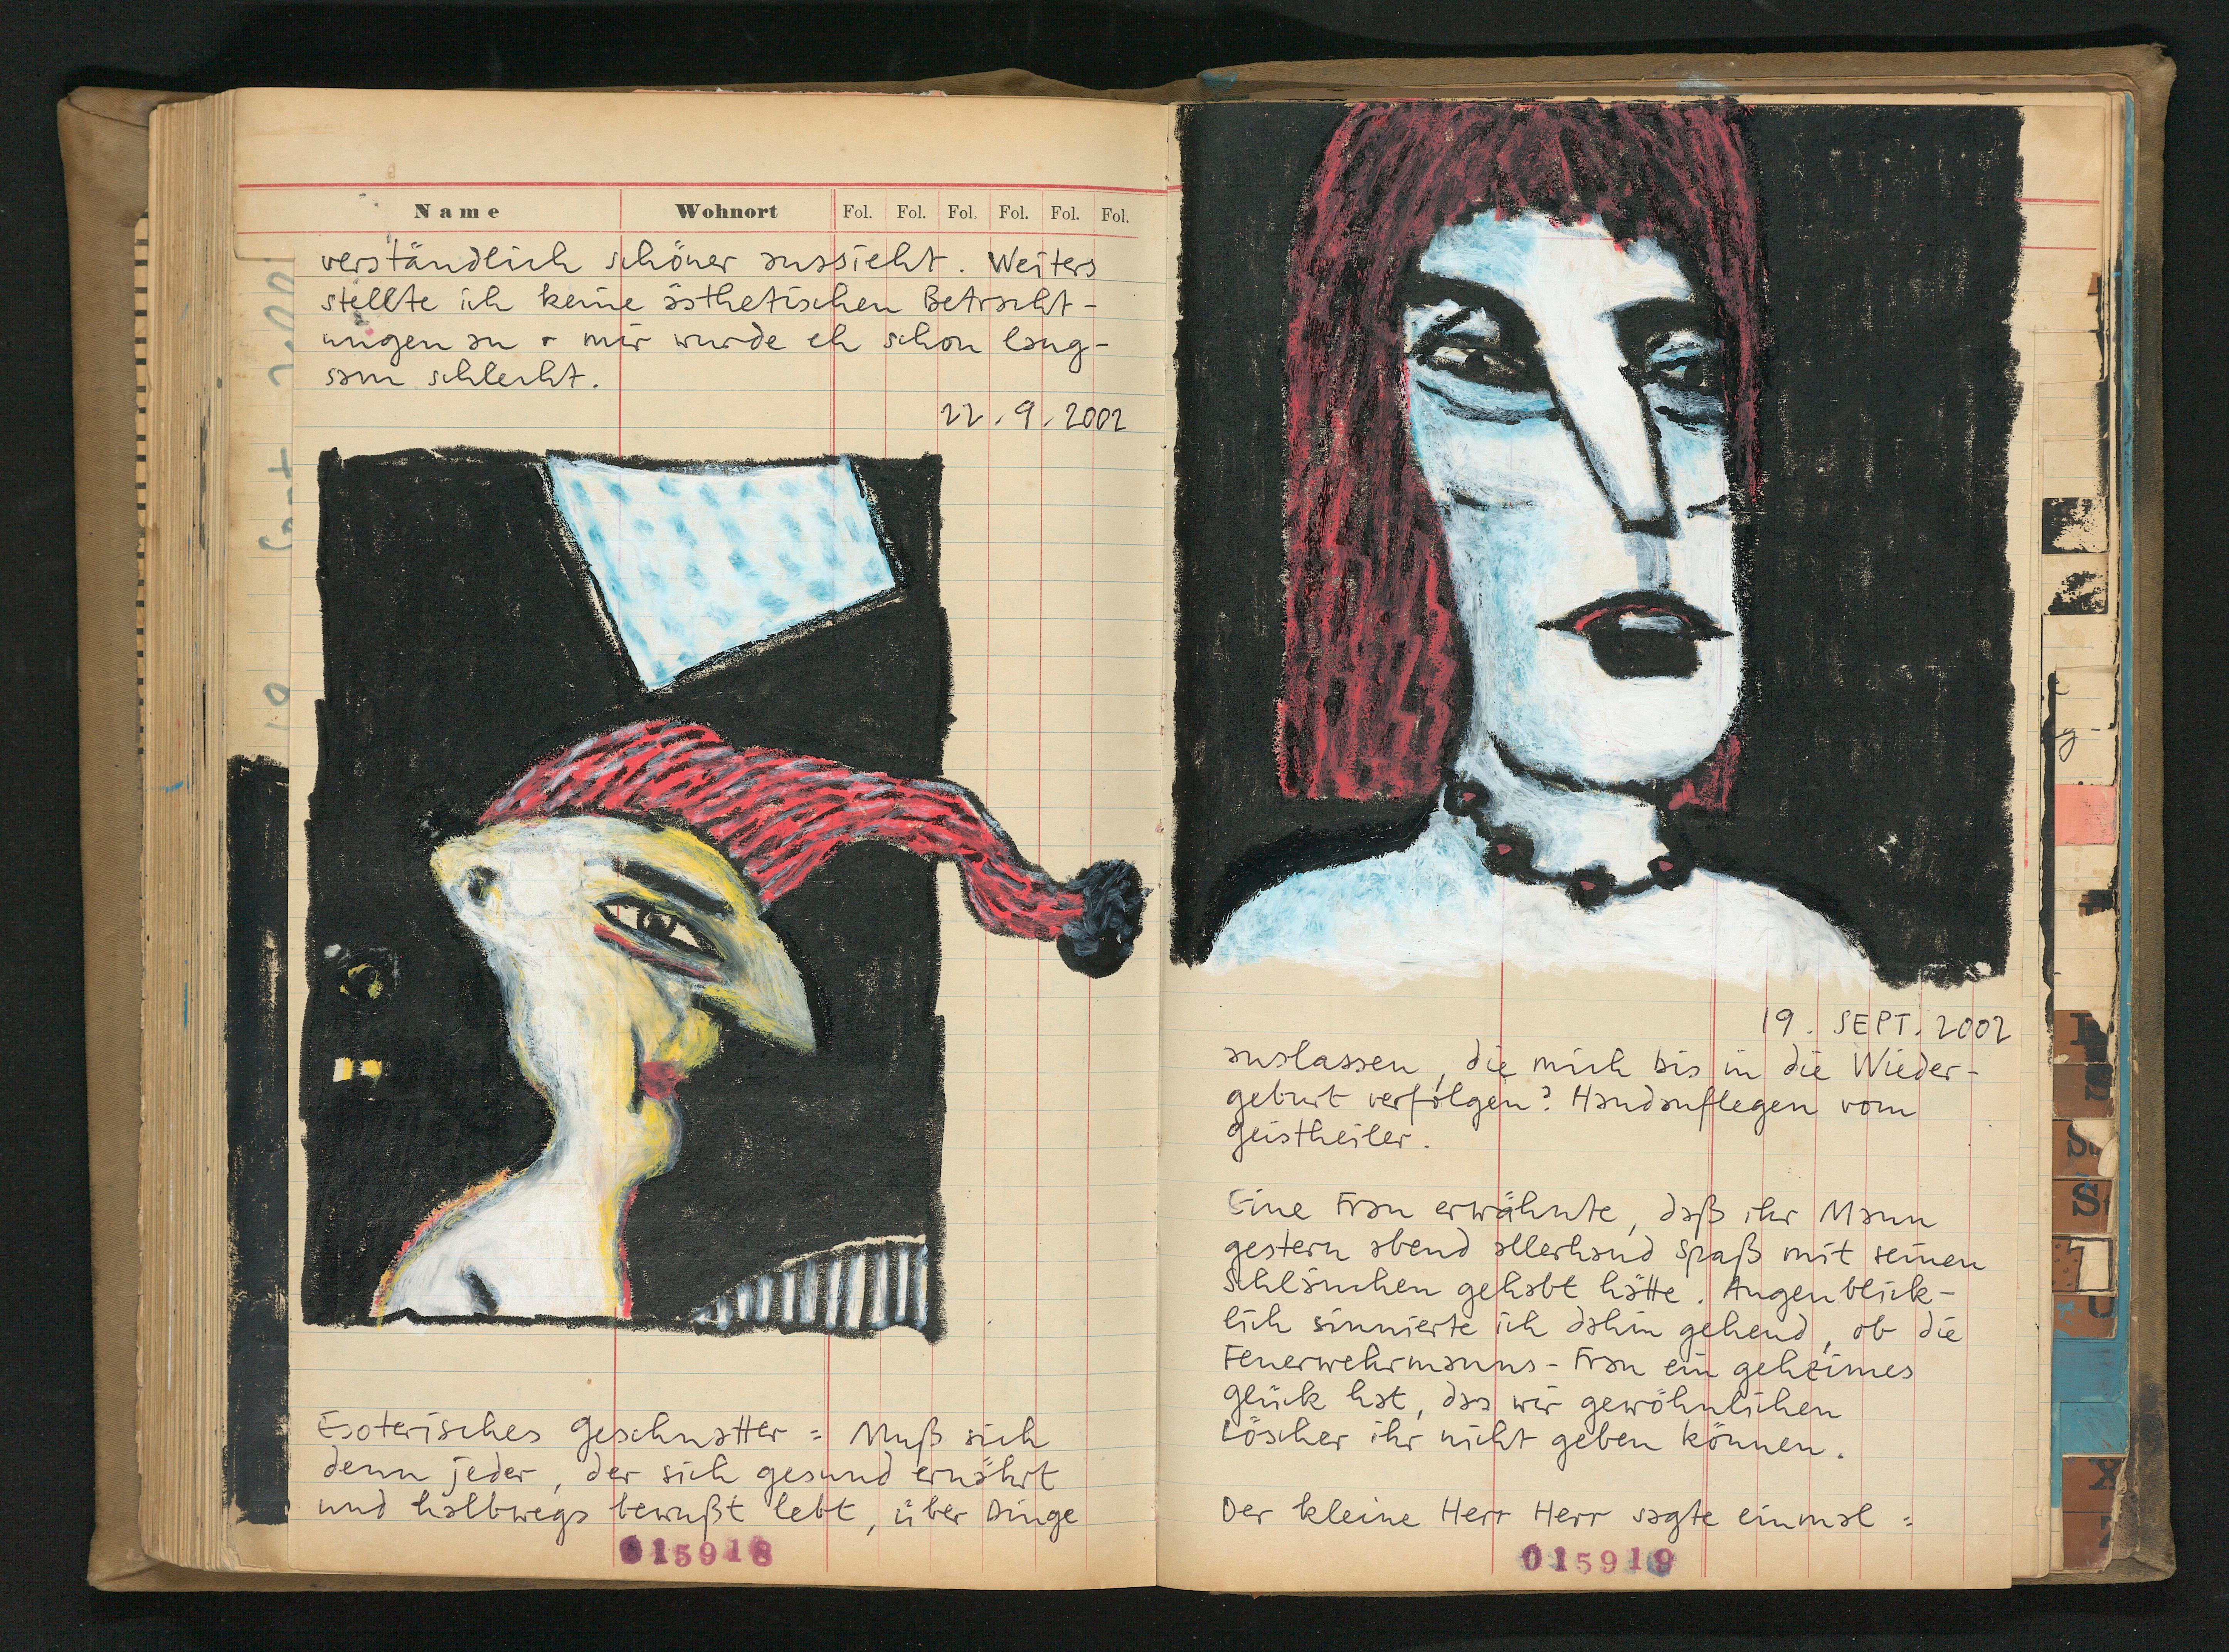 Name Wohnort Fol. Fol. Fol. Fol. Fol. Fol.
verständlich schöner aussieht. Weiters
stellte ich keine ästhetischen Betracht-
ungen an + mir wurde eh schon lang-
sam schlecht.
22.9.2002
Esoterisches Geschnatter: Muß sich
denn jeder, der sich gesund ernährt
und halbwegs bewußt lebt, über Dinge
015918
19. SEPT. 2002
auslassen, die mich bis in die Wieder-
geburt verfolgen? Handauflegen vom
Geistheiler.
Eine Frau erwähnte, daß ihr Mann
gestern abend allerhand Spaß mit seinen
Schläuchen gehabt hätte. Augenblick-
lich sinnierte ich dahin gehend, ob die
Feuerwehrmanns-Frau ein geheimes
Glück hat, das wir gewöhnlichen
Löscher ihr nicht geben können.
Der kleine Herr Herr sagte einmal:
015919